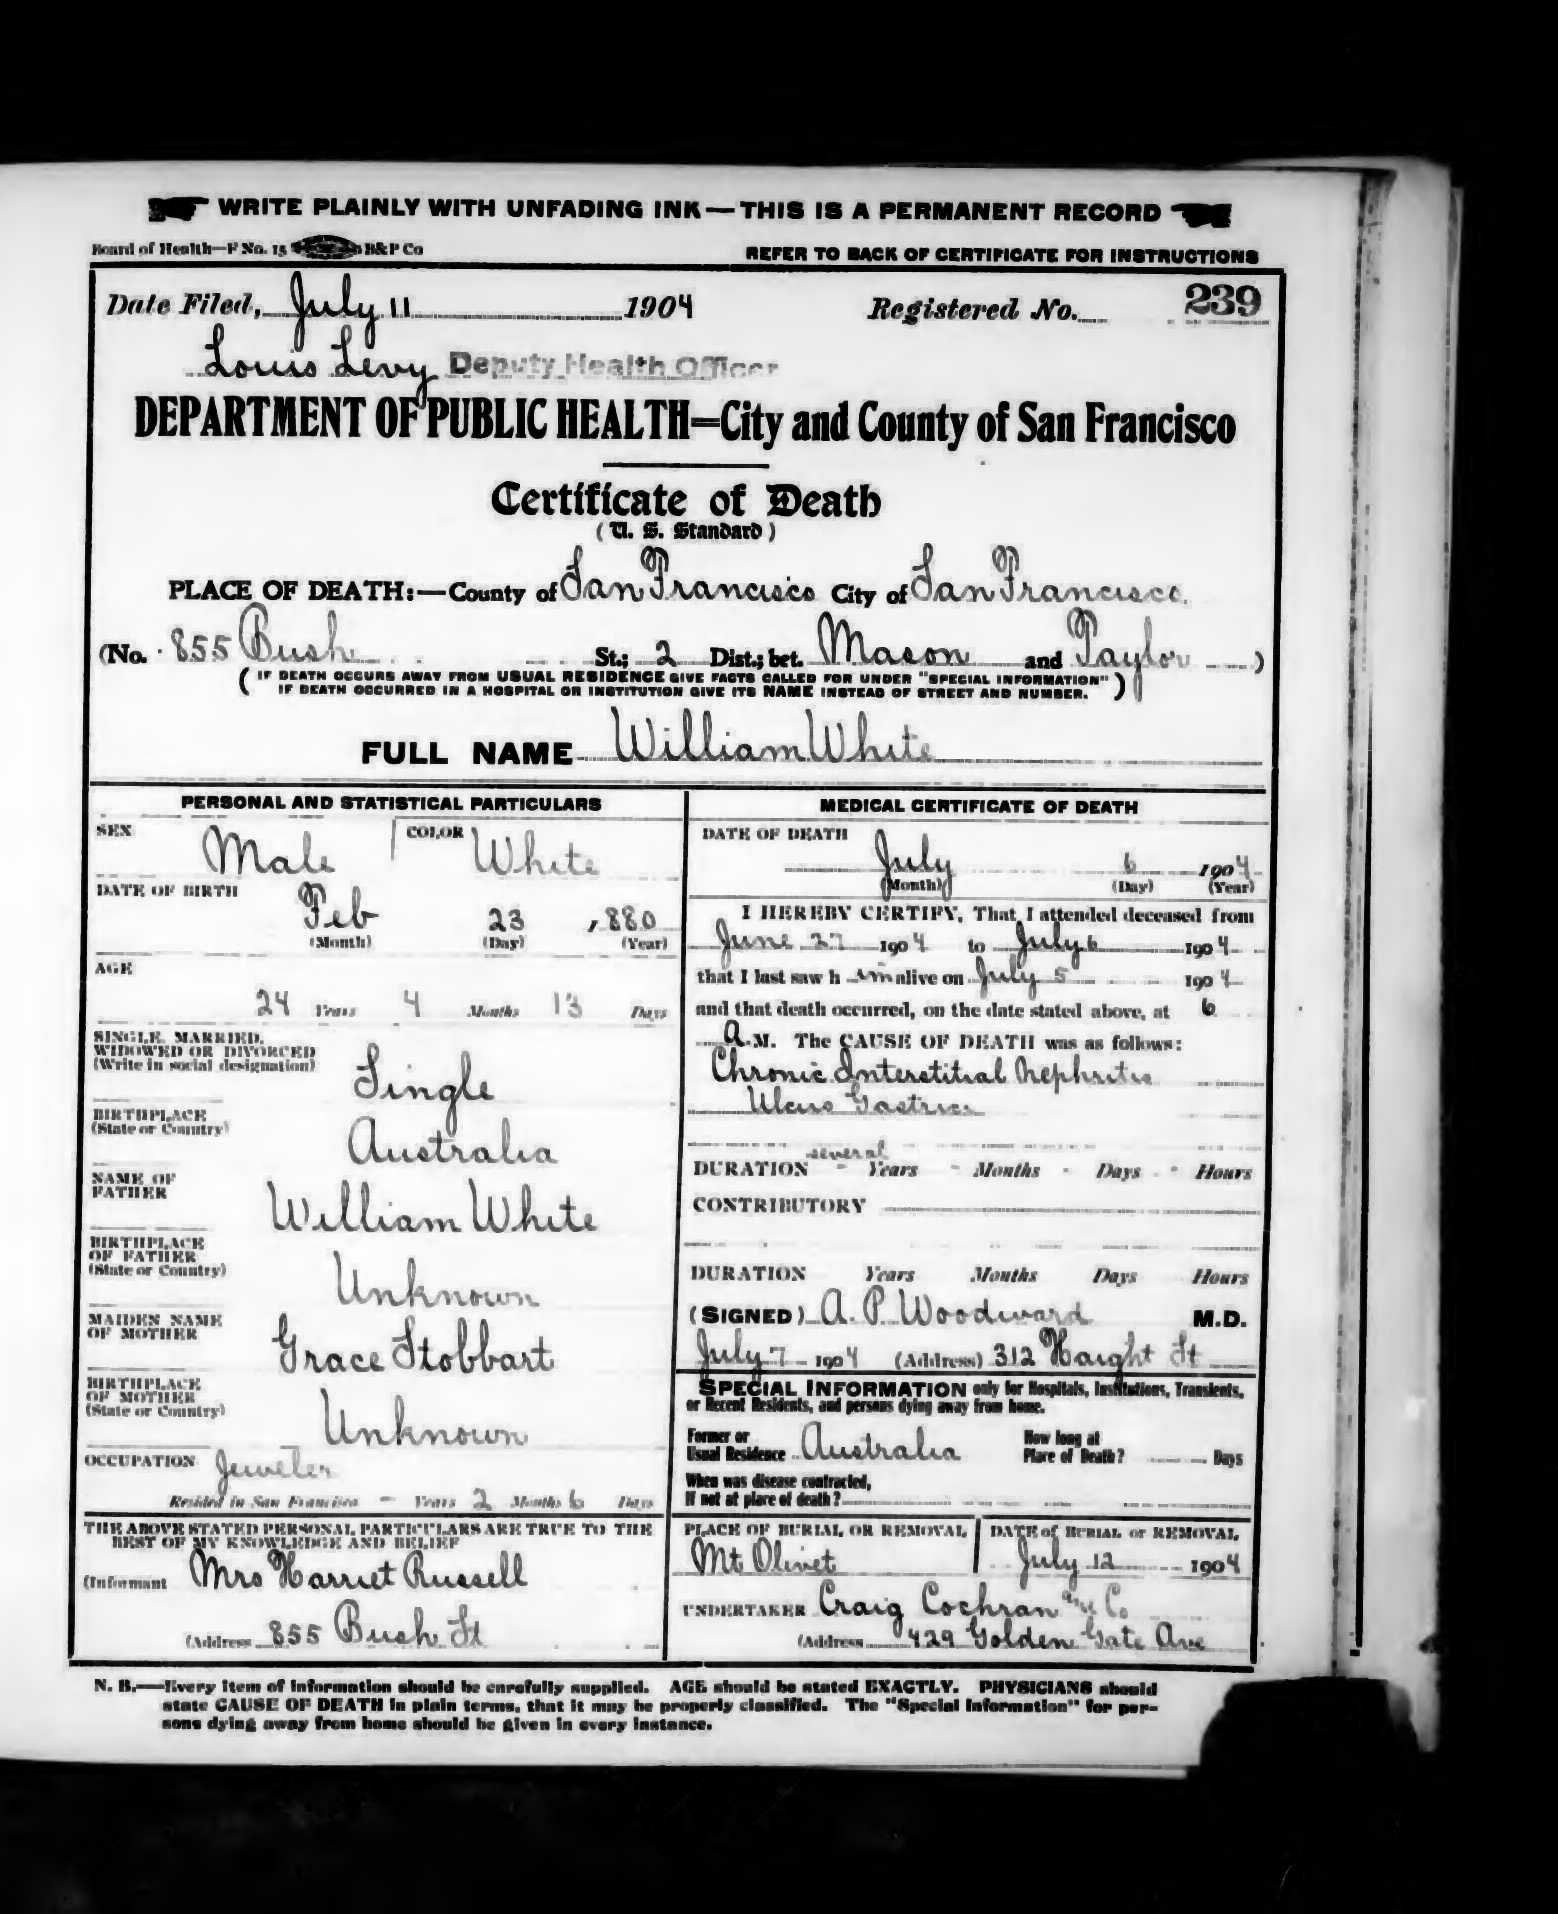 WRITE PLAINLY WITH UNFADING INK—THIS IS A PERMANENT RECORD
Board of Health—F No. 15 B&P Co
REFER TO BACK OF CERTIFICATE FOR INSTRUCTIONS
Date Filed, July 11 1904 Registered No. 239
Louis Levy Deputy Health Officer
DEPARTMENT OF PUBLIC HEALTH=City and County of San Francisco
Certificate of Death
(U. S. Standard)
PLACE OF DEATH:—County of San Francisco City of San Francisco
(No. 855 Bush St.; 2 Dist.; bet. Mason and Taylor)
(IF DEATH OCCURS AWAY FROM USUAL RESIDENCE GIVE FACTS CALLED FOR UNDER "SPECIAL INFORMATION"
IF DEATH OCCURRED IN A HOSPITAL OR INSTITUTION GIVE ITS NAME INSTEAD OF STREET AND NUMBER.)
FULL NAME William White
PERSONAL AND STATISTICAL PARTICULARS
SEX Male COLOR White
DATE OF BIRTH
Feb 23 , 880
(Month) (Day) (Year)
AGE
24 Years 4 Months 13 Days
SINGLE, MARRIED,
WIDOWED OR DIVORCED
(Write in social designation) Single
BIRTHPLACE
(State or Country) Australia
NAME OF
FATHER William White
BIRTHPLACE
OF FATHER
(State or Country) Unknown
MAIDEN NAME
OF MOTHER Grace Stobbart
BIRTHPLACE
OF MOTHER
(State or Country) Unknown
OCCUPATION Jeweler
Resided in San Francisco - Years 2 Months 6 Days
THE ABOVE STATED PERSONAL PARTICULARS ARE TRUE TO THE
BEST OF MY KNOWLEDGE AND BELIEF
(Informant Mrs Harriet Russell
(Address 855 Bush St
MEDICAL CERTIFICATE OF DEATH
DATE OF DEATH
July 6 1904
(Month) (Day) (Year)
I HEREBY CERTIFY, That I attended deceased from
June 27 1904 to July 6 1904
that I last saw h im alive on July 5 1904
and that death occurred, on the date stated above, at 6
A.M. The CAUSE OF DEATH was as follows:
Chronic Interstitial Nephritis
Ulcus Gastrica
several
DURATION - Years - Months - Days - Hours
CONTRIBUTORY
DURATION Years Months Days Hours
(SIGNED) A. P. Woodward M.D.
July 7 1904 (Address) 312 Haight St
SPECIAL INFORMATION only for Hospitals, Institutions, Transients,
or Recent Residents, and persons dying away from home.
Former or
Usual Residence Australia
How long at
Place of Death? Days
When was disease contracted,
If not at place of death?
PLACE OF BURIAL OR REMOVAL
Mt Olivet
DATE of BURIAL or REMOVAL
July 12 1904
UNDERTAKER Craig Cochran and Co
(Address 429 Golden Gate Ave
N. B.—Every item of information should be carefully supplied. AGE should be stated EXACTLY. PHYSICIANS should
state CAUSE OF DEATH in plain terms, that it may be properly classified. The "Special Information" for per-
sons dying away from home should be given in every instance.